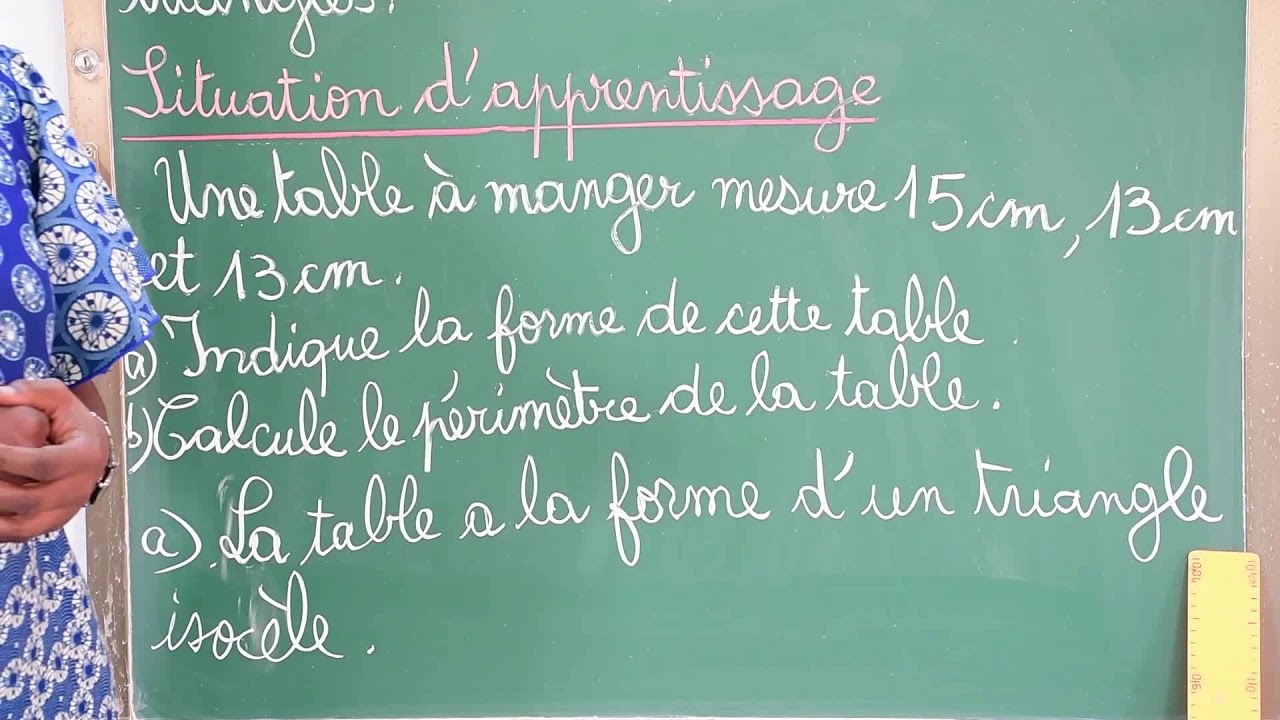 triangles.
Situation d'apprentissage
Une table à manger mesure 15cm, 13cm
et 13cm.
a) Indique la forme de cette table.
b) Calcule le périmètre de la table.
a) La table a la forme d'un triangle
isocèle.